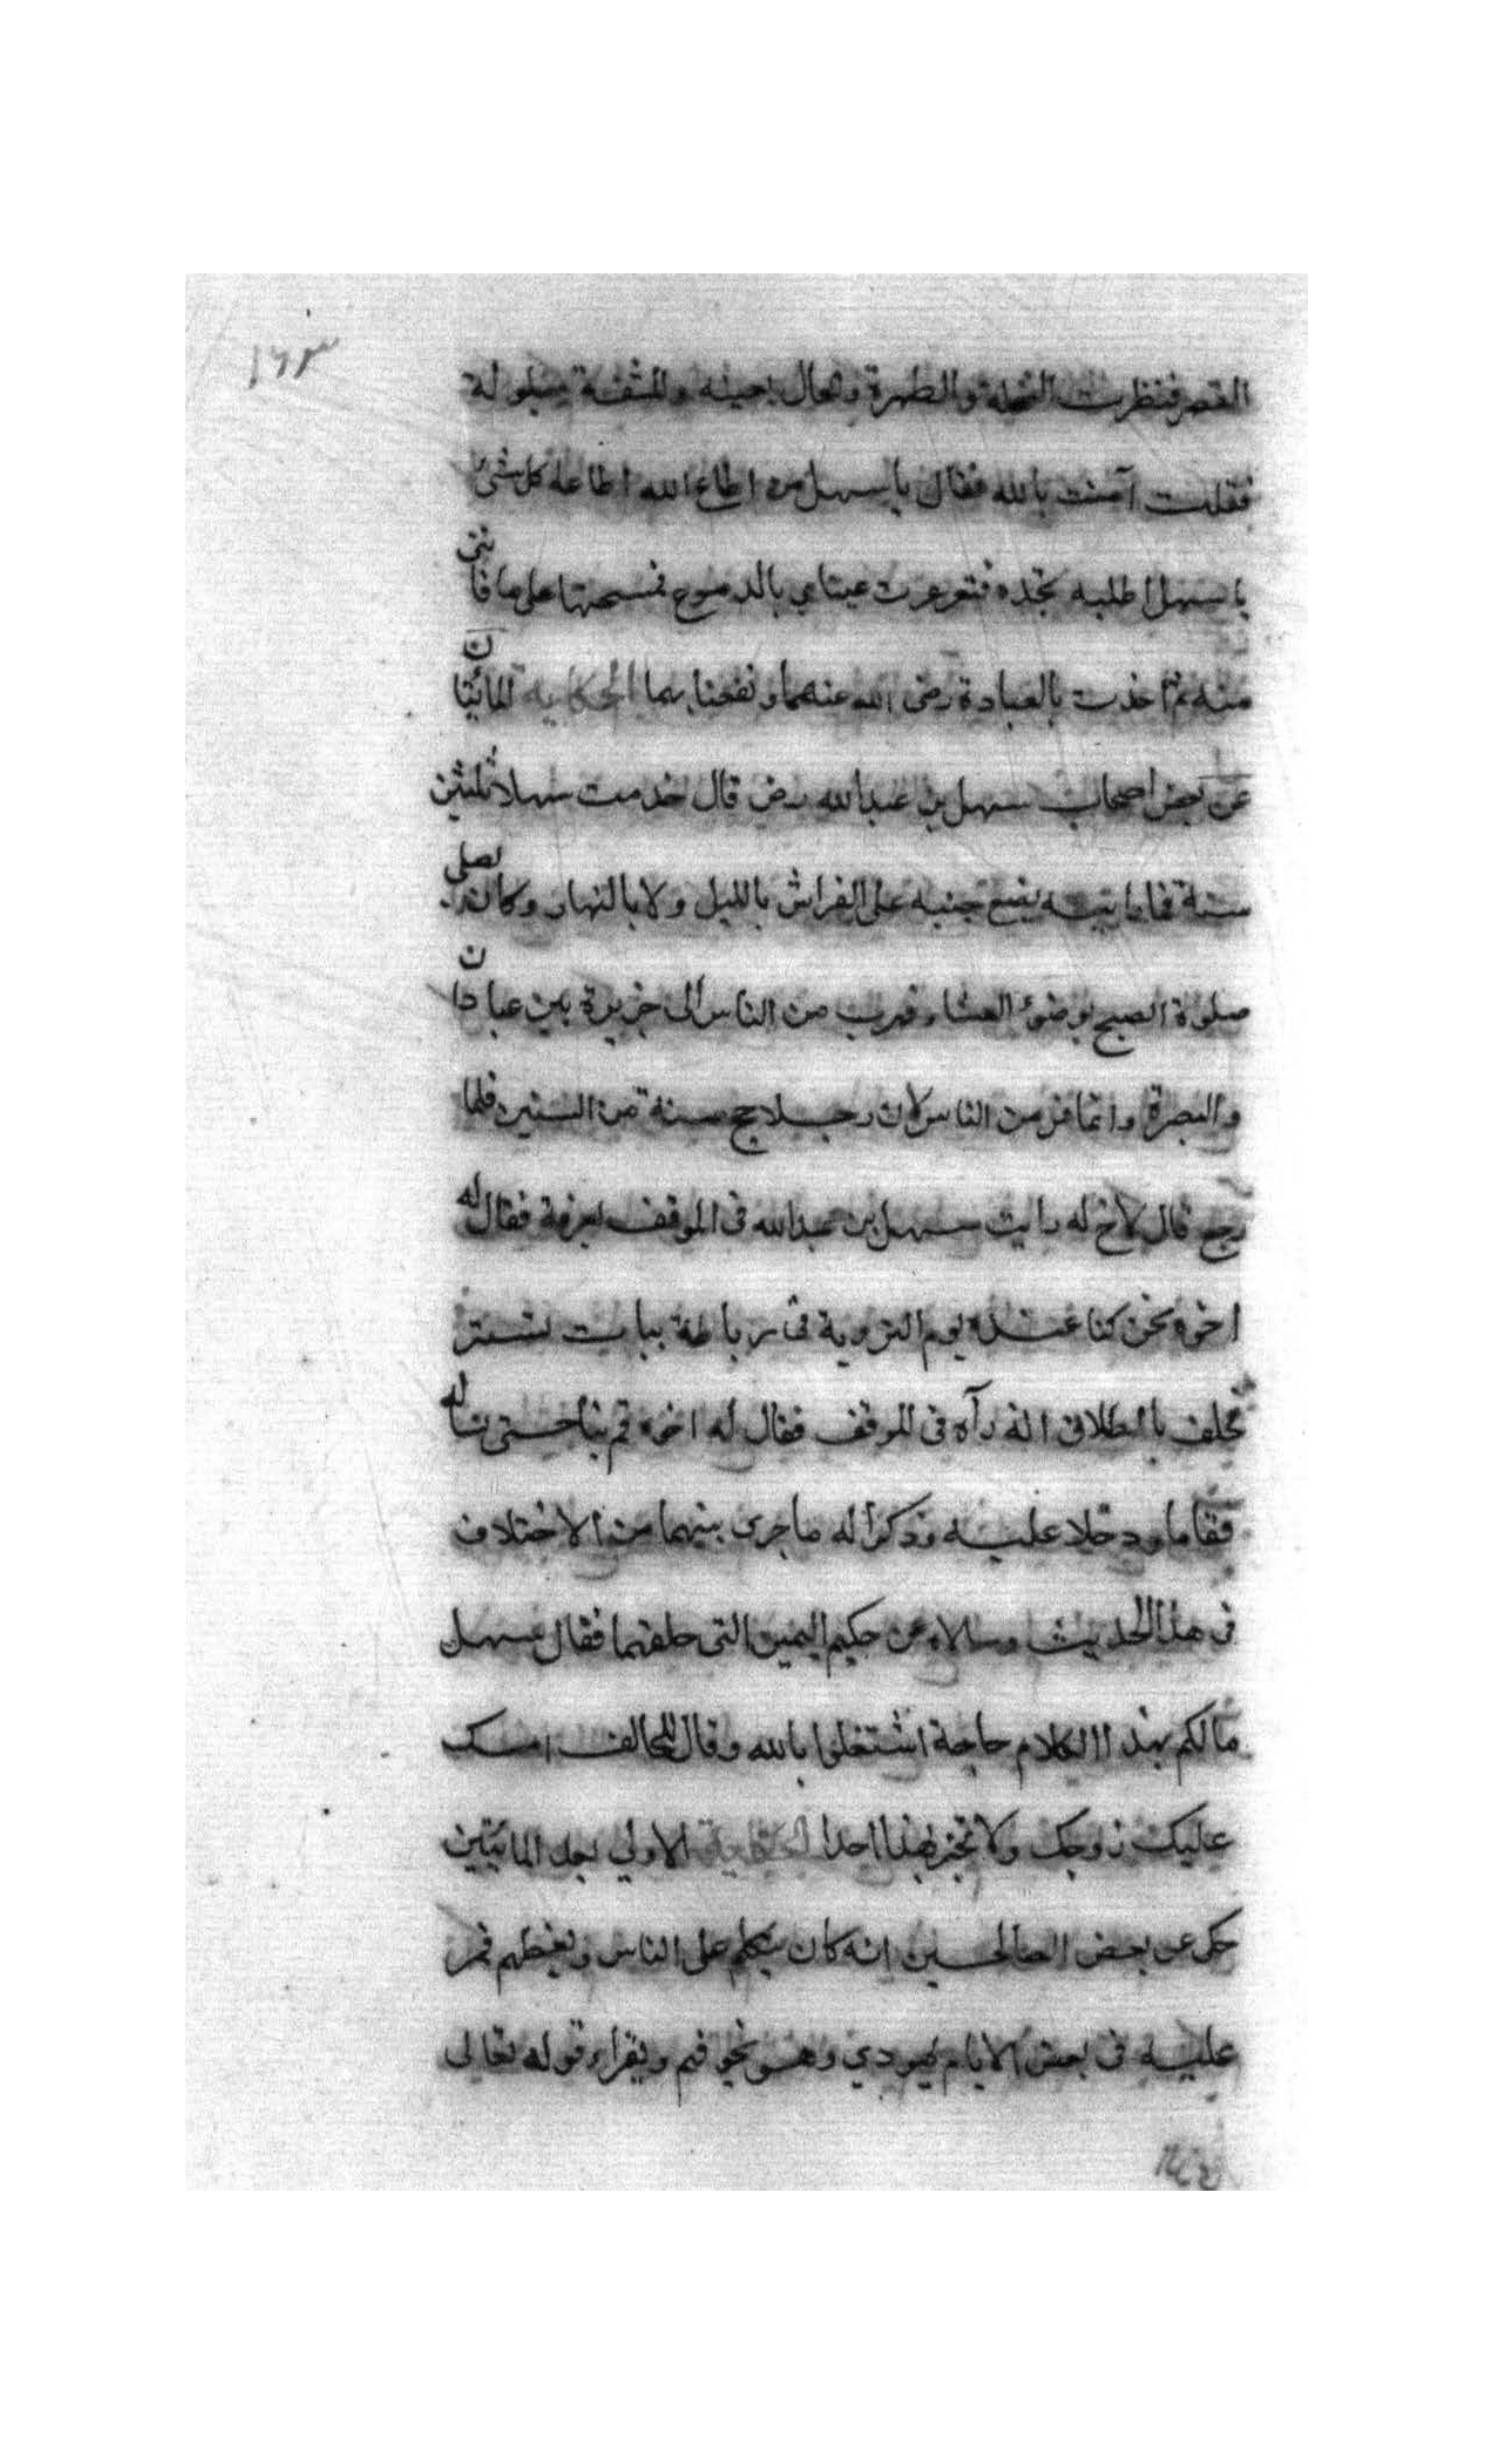 ١٦٣
القصر فنظرت النخلة والمطهرة والحال بعينه والمنشفة مبلولة
فقلت آمنت بالله فقال يا سهل من اطاع الله اطاعه كل شئ
يا سهل اطلبه تجده فتغرغرت عيناي بالدموع فمسحتها على ما فاتني
منه ثم اخذت بالعبادة رضى الله عنهما ونفعنا بهما الحكاية المائيتان
عن بعض اصحاب سهل بن عبدالله رض قال خدمت سهلا ثلثين
سنة فما رايته يضع جنبه على الفراش بالليل ولا بالنهار وكان يصلى
صلوة الصبح بوضوء العشاء فهرب من الناس الى جزيرة بين عبادان
والبصرة وانما فر من الناس لان رجلا حج سنة من السنين فلما
رجع قال لاخ له رايت سهل بن عبدالله فى الموقف بعرفة فقال له
اخوه نحن كنا عنده يوم التروية فى رباطه بباب تستر
فحلف بالطلاق انه رآه فى الموقف فقال له اخوه قم بنا حتى نساله
فقاما ودخلا عليه وذكرا له ما جرى بينهما من الاختلاف
فى هذا الحديث وسالاه عن حكم اليمين التى حلفهما فقال سهل
ما لكم بهذا الكلام حاجة اشتغلوا بالله وقال للحالف امسك
عليك زوجك ولا تخبر بهذا احدا الحكاية الاولى بعد المائيتين
حكى عن بعض الصالحين انه كان يتكلم على الناس ويعظهم فمر
عليه فى بعض الايام يهودي وهو يخوفهم ويقراء قوله تعالى